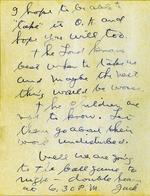 I hope to be able to
"take" it O.K. and
hope you will too.
The Lord knows
best when to take us
and maybe the next
thing would be worse
The children are
not to know. Let
them go about their
work undisturbed.
Well we are going
to the ball game to
night – double header
at 6:30 P.M. Jack